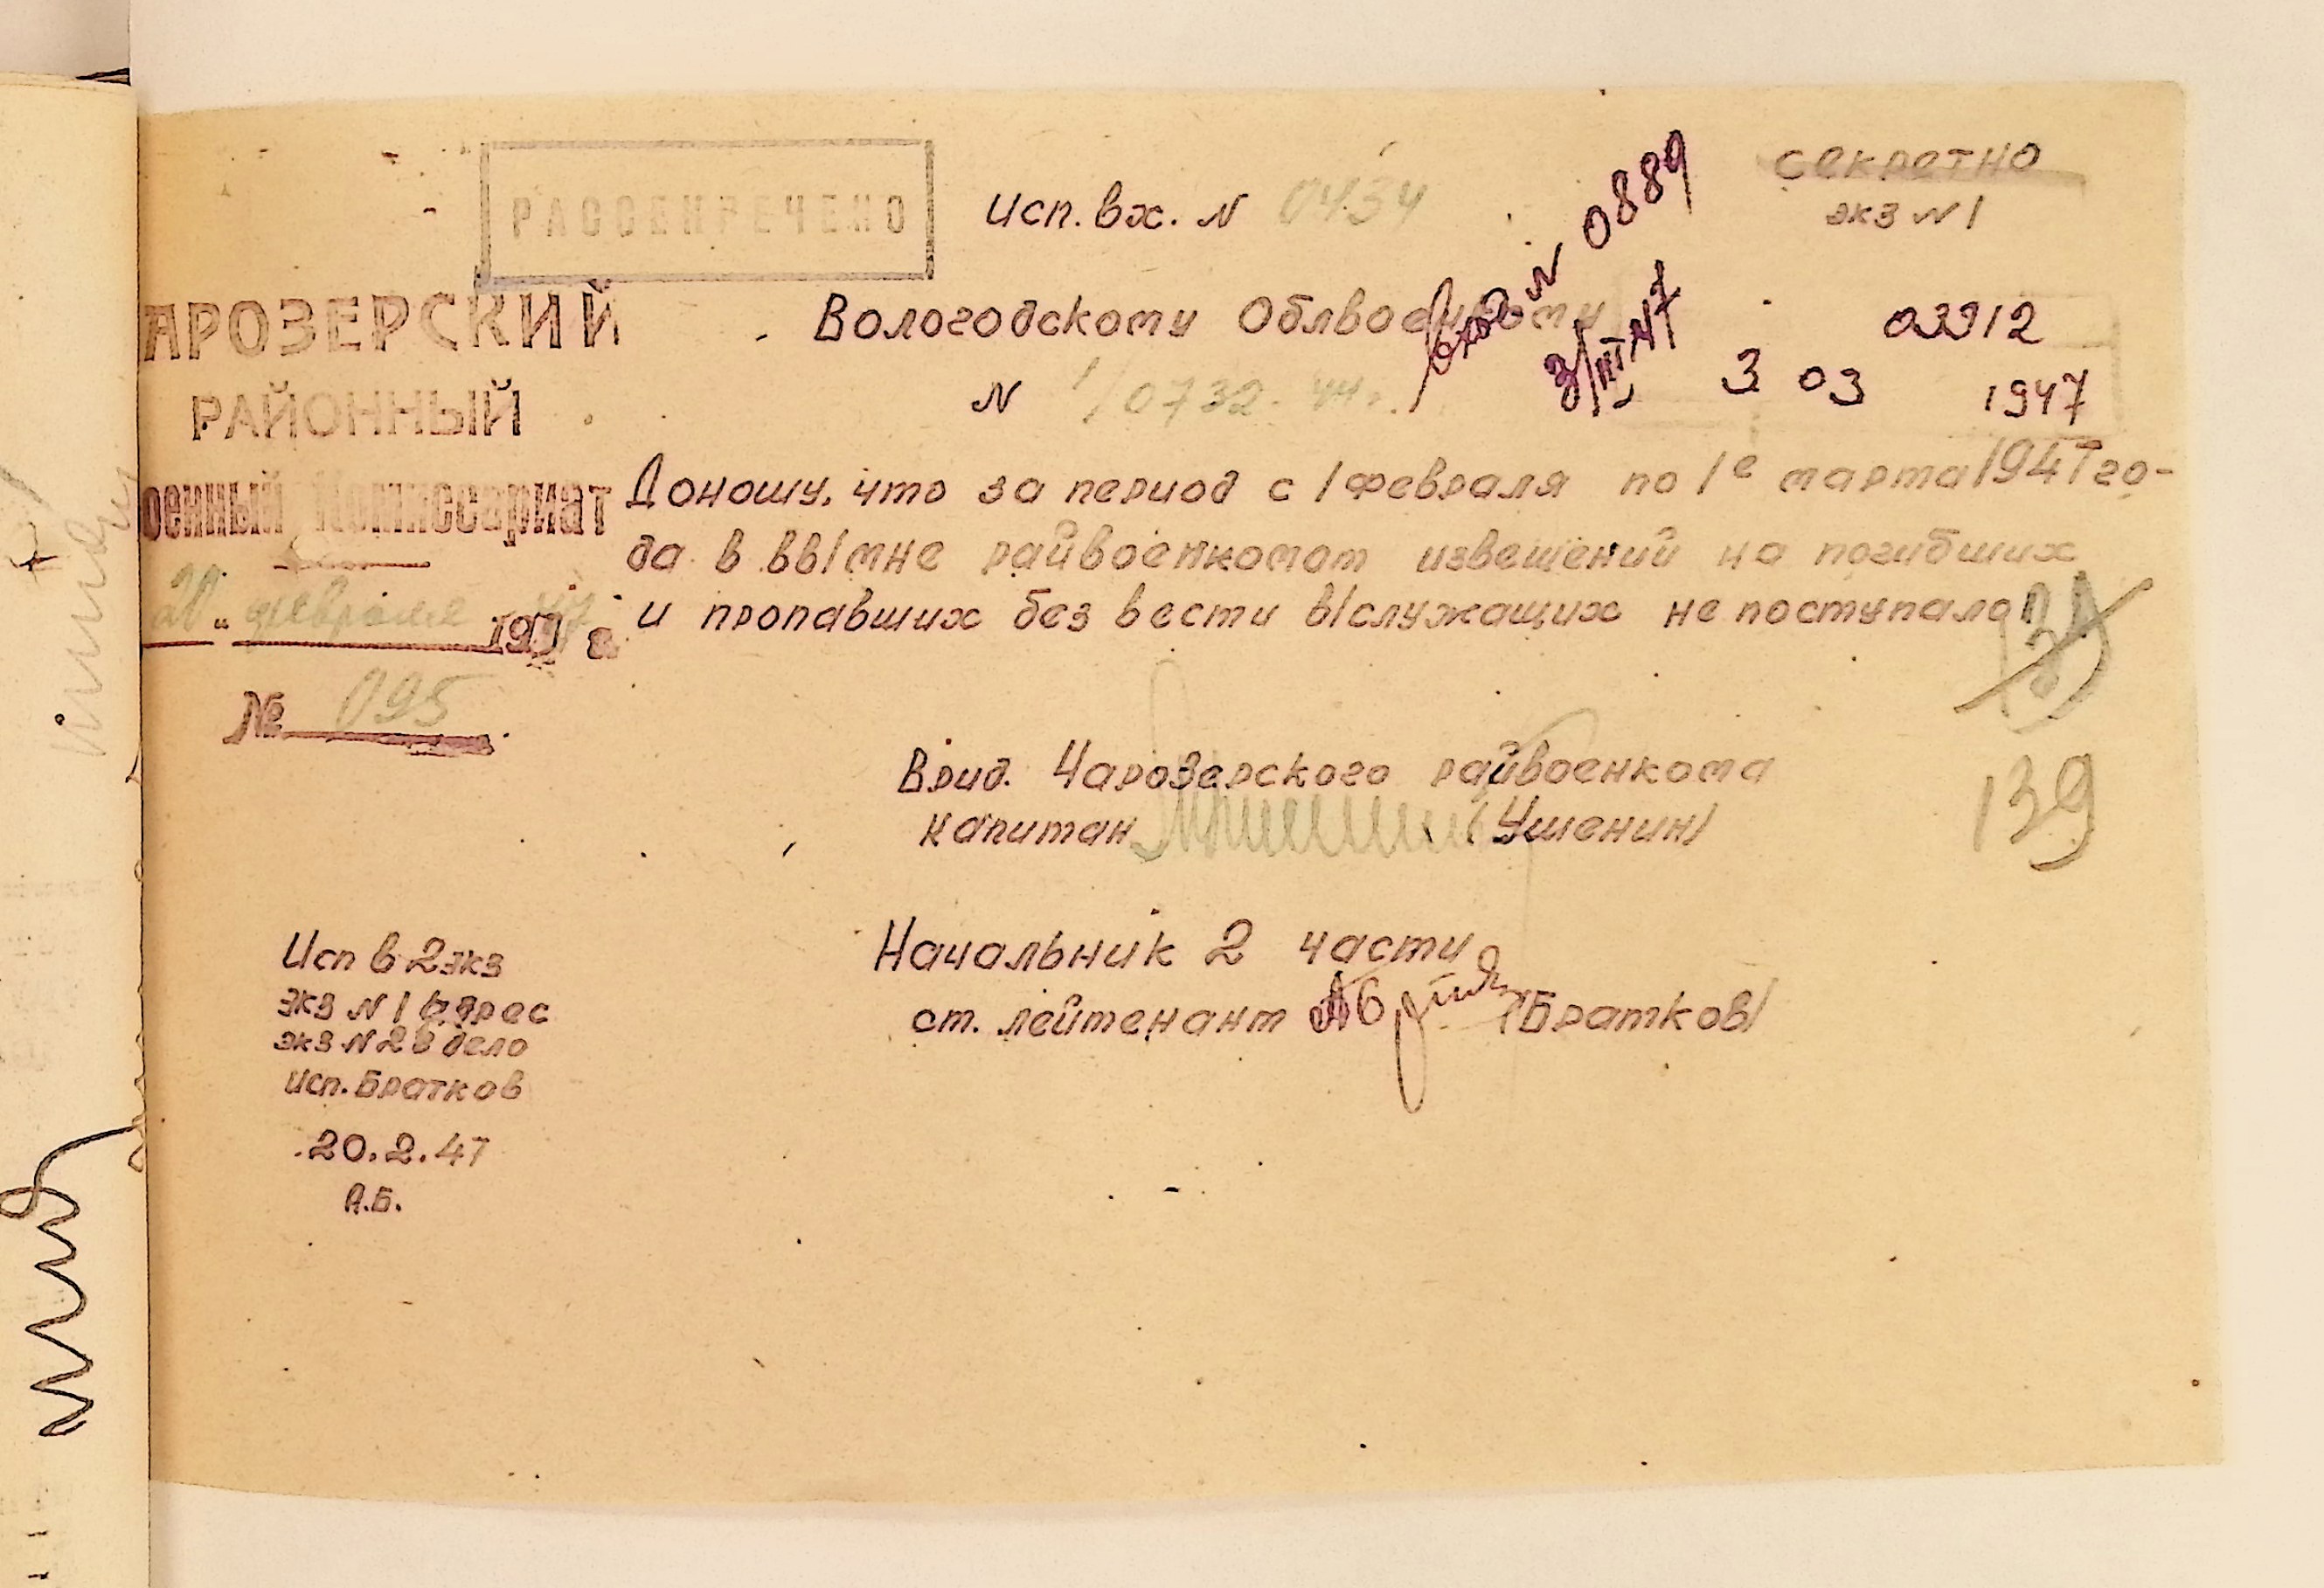 РАССЕКРЕЧЕНО
Исп. вх. N 0434
секретно
экз N 1
вход N 0889
3/III 47
АРОЗЕРСКИЙ
РАЙОННЫЙ
оенный Комиссариат
20 " февраля 1947 г.
№ 095
Вологодскому Облвоенкому
N 1/0732. 44г.
03912
3 03 1947
Доношу, что за период с 1 февраля по 1е марта 1947 го-
да в вв/мне райвоенкомат извещений на погибших
и пропавших без вести в/служащих не поступало
139
Врид. Чарозерского райвоенкома
капитан /Ушенин/
Начальник 2 части
ст. лейтенант /Братков/
Исп в 2 экз
экз N 1 адрес
экз N 2 в дело
исп. Братков
20.2.47
А.Б.